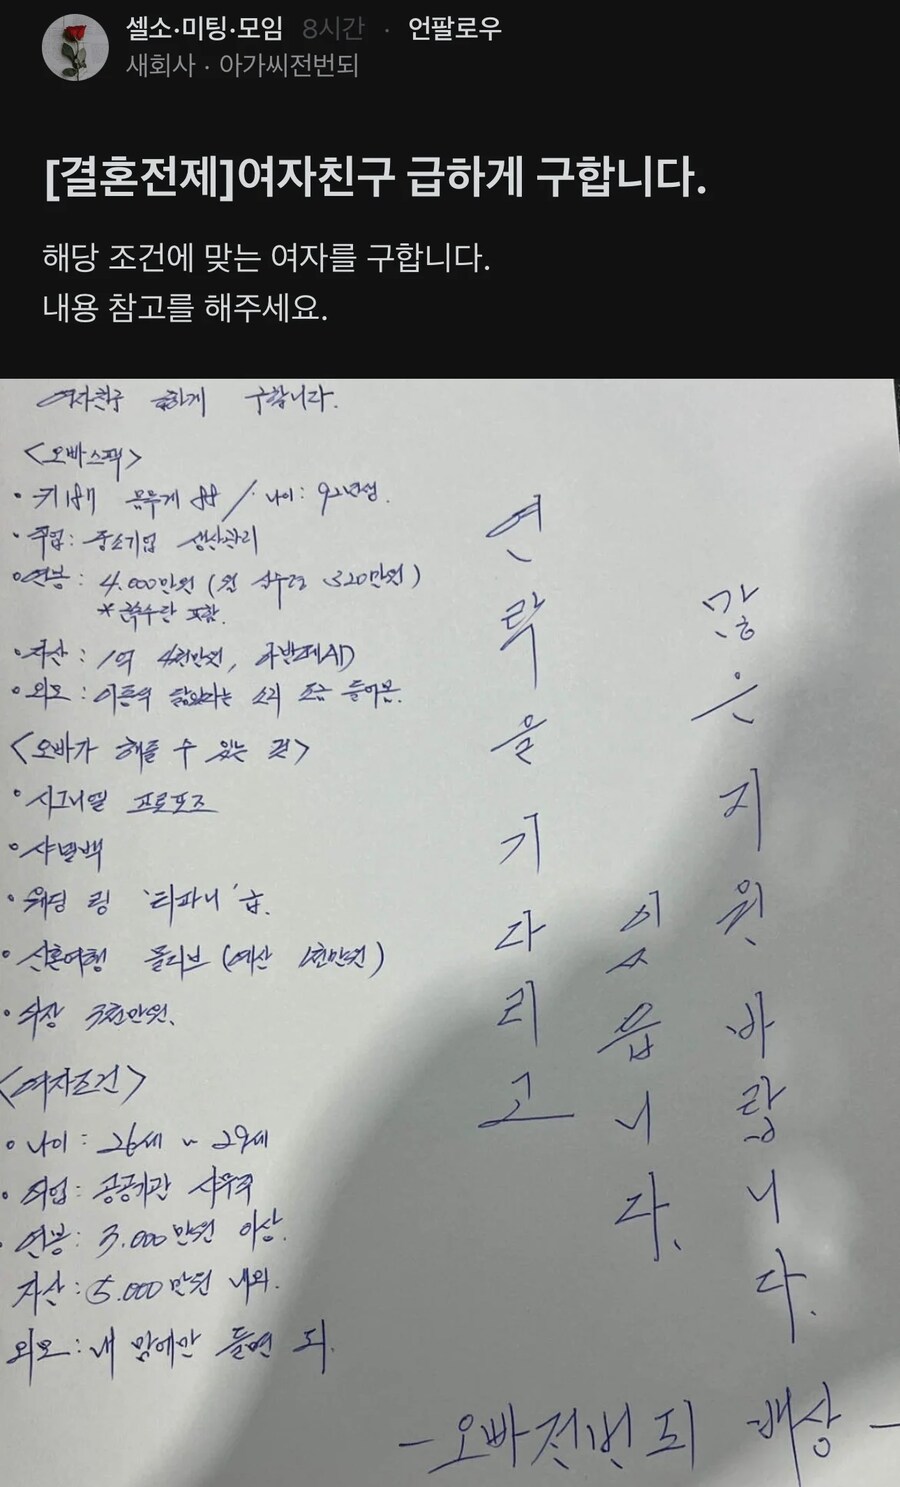 셀소·미팅·모임 8시간 · 언팔로우
새회사 · 아가씨전번되
[결혼전제]여자친구 급하게 구합니다.
해당 조건에 맞는 여자를 구합니다.
내용 참고를 해주세요.
여자친구 급하게 구합니다.
<오빠스펙>
• 키 몸무게 / 나이: 92년생.
• 직업: 중소기업 생산관리
• 연봉: 4.000만원 (월 실수령 320만원)
* 특수당 포함.
• 자산: 1억 4천만원,
• 외모: 이종석 닮았다는 소리 조금 들어봄.
<오빠가 해줄 수 있는 것>
• 시그니엘 프로포즈
• 샤넬백
• 웨딩 링 '티파니'급.
• 신혼여행 몰디브 (예산 1천만원)
• 식장 3천만원.
<여자조건>
• 나이: 26세 ~ 29세
• 직업: 공공기관 사무직
• 연봉: 3.000만원 이상.
자산: 5.000만원 내외.
외모: 내 맘에만 들면 되.
많은 지원 바랍니다.
연락을 기다리고
있읍니다.
- 오빠전번되 배상 -